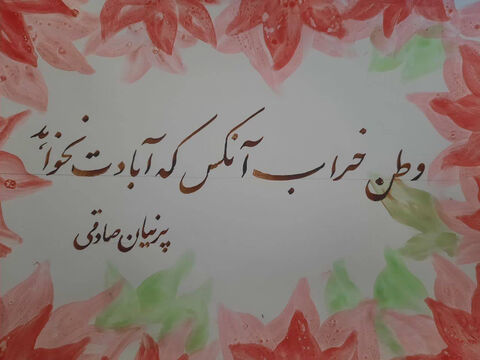 وطن خراب آنکس که آبادت نخواهد
پرنیان صادقی